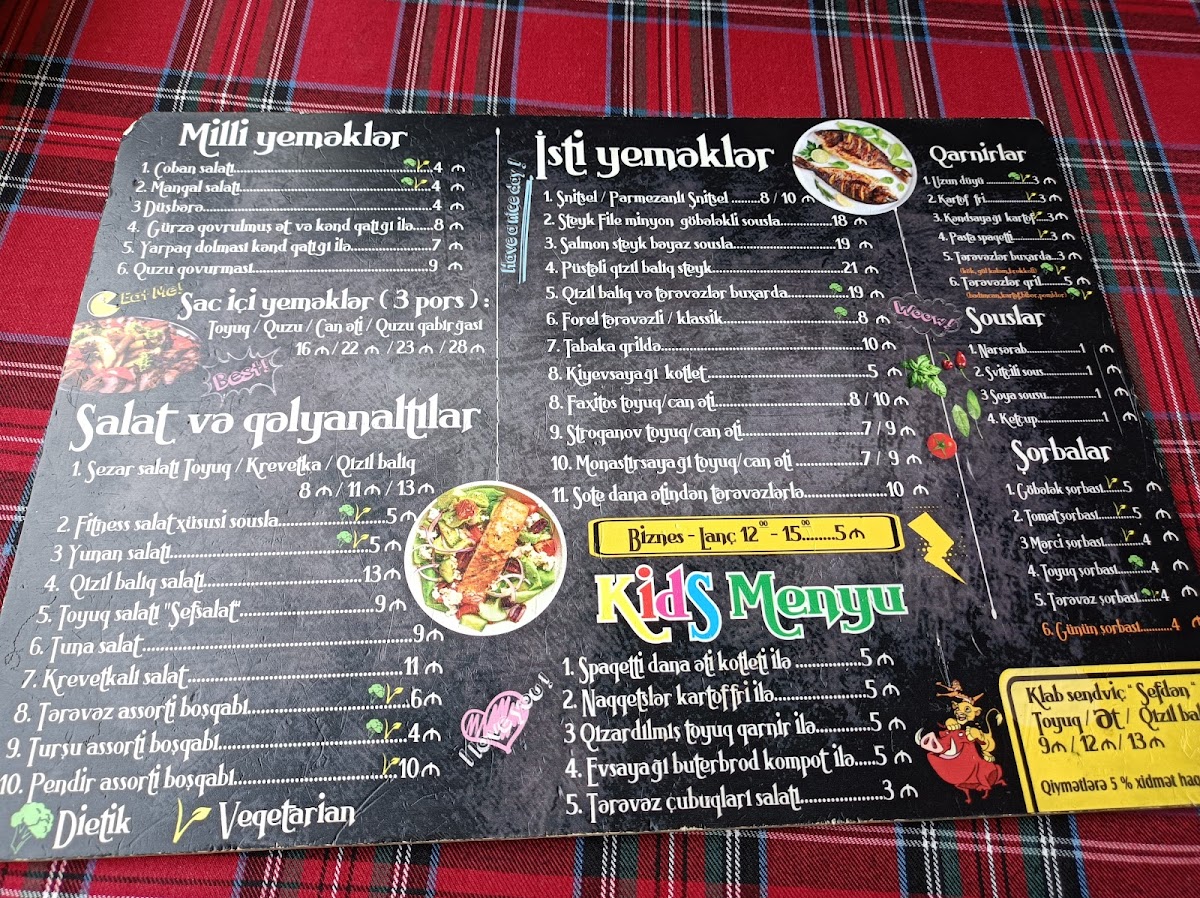 Milli yeməklər
1. Çoban salatı 4 ₼
2. Manqal salatı 4 ₼
3 Düşbərə 4 ₼
4. Gürzə qovrulmuş ət və kənd qatığı ilə 8 ₼
5. Yarpaq dolması kənd qatığı ilə 7 ₼
6. Quzu qovurması 9 ₼
Eat Me!
Sac içi yeməklər ( 3 pors ) :
Toyuq / Quzu / Can əti / Quzu qabırğası
16 ₼ / 22 ₼ / 23 ₼ / 28 ₼
Best!
Salat və qəlyanaltılar
1. Sezar salatı Toyuq / Krevetka / Qızıl balıq
8 ₼ / 11 ₼ / 13 ₼
2. Fitness salat xüsusi sousla 5 ₼
3 Yunan salatı 5 ₼
4. Qızıl balıq salatı 13 ₼
5. Toyuq salatı "Şefsalat" 9 ₼
6. Tuna salat 9 ₼
7. Krevetkalı salat 11 ₼
8. Tərəvəz assorti boşqabı 6 ₼
9. Turşu assorti boşqabı 4 ₼
10. Pendir assorti boşqabı 10 ₼
Dietik
Vegetarian
Have a nice day!
İsti yeməklər
1. Şnitsel / Parmezanlı Şnitsel 8 / 10 ₼
2. Steyk File minyon göbələkli sousla 18 ₼
3. Salmon steyk bəyaz sousla 19 ₼
4. Püstəli qızıl balıq steyk 21 ₼
5. Qızıl balıq və tərəvəzlər buxarda 19 ₼
6. Forel tərəvəzli / klassik 8 ₼
7. Tabaka qrildə 10 ₼
8. Kiyevsayağı kotlet 5 ₼
8. Faxitos toyuq/can əti 8 / 10 ₼
9. Stroqanov toyuq/can əti 7 / 9 ₼
10. Monastırsayağı toyuq/can əti 7 / 9 ₼
11. Sote dana ətindən tərəvəzlərlə 10 ₼
Biznes - Lanç 12 00 - 15 00 5 ₼
Kids Menyu
1. Spaqetti dana əti kotleti ilə 5 ₼
2. Naqqetslər kartof fri ilə 5 ₼
3 Qızardılmış toyuq qarnir ilə 5 ₼
4. Evsayağı buterbrod kompot ilə 5 ₼
5. Tərəvəz çubuqları salatı 3 ₼
Qarnirlar
1. Uzun düyü 3 ₼
2. Kartof fri 3 ₼
3. Kəndsayağı kartof 3 ₼
4. Pasta spaqetti 3 ₼
5. Tərəvəzlər buxarda 3 ₼
6. Tərəvəzlər qril 5 ₼
Woow!
Souslar
1. Narşərab 1 ₼
2. Svitçili sous 1 ₼
3 Soya sousu 1 ₼
4. Ketçup 1 ₼
Şorbalar
1. Göbələk şorbası 5 ₼
2. Tomat şorbası 5 ₼
3 Mərci şorbası 4 ₼
4. Toyuq şorbası 4 ₼
5. Tərəvəz şorbası 4 ₼
6. Günün şorbası 4 ₼
Klab sendviç "Şefdən"
Toyuq / Ət / Qızıl
9 ₼ / 12 ₼ / 13 ₼
Qiymətlərə 5 % xidmət